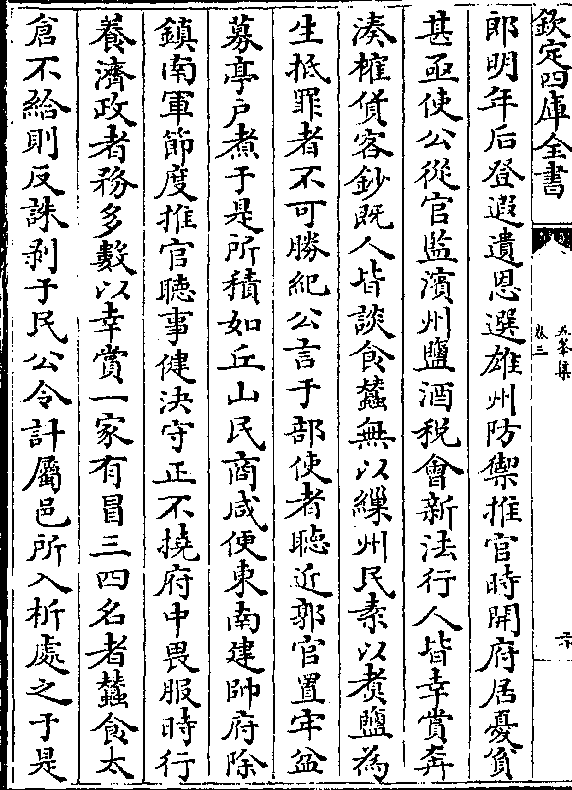 欽定四庫全書
卷三
郎明年后登遐遺恩選雄州防禦推官時開府居憂貧
甚亟使公從官監濱州鹽酒稅會新法行人皆幸賞奔
湊榷貨客鈔既人皆談食蠶無以繅州民素以煑鹽為
生抵罪者不可勝紀公言于部使者聽近郭官置牢盆
募亭戶煮于是所積如丘山民商咸便東南建帥府除
鎮南軍節度推官聽事健決守正不撓府中畏服時行
養濟政者務多數以幸賞一家有冒三四名者蠶食太
倉不給則反誅剥于民公令計屬邑所入析處之于是